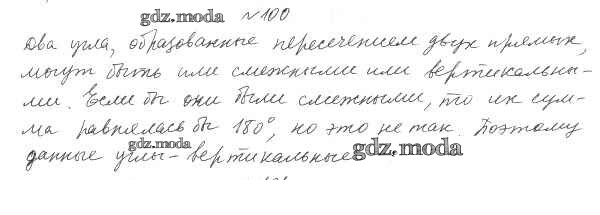 gdz.moda №100
Два угла, образованные пересечением двух прямых,
могут быть или смежными или вертикальны-
ми. Если бы они были смежными, то их сум-
ма равнялась бы 180°, но это не так. Поэтому
gdz.moda
данные углы - вертикальные gdz.moda